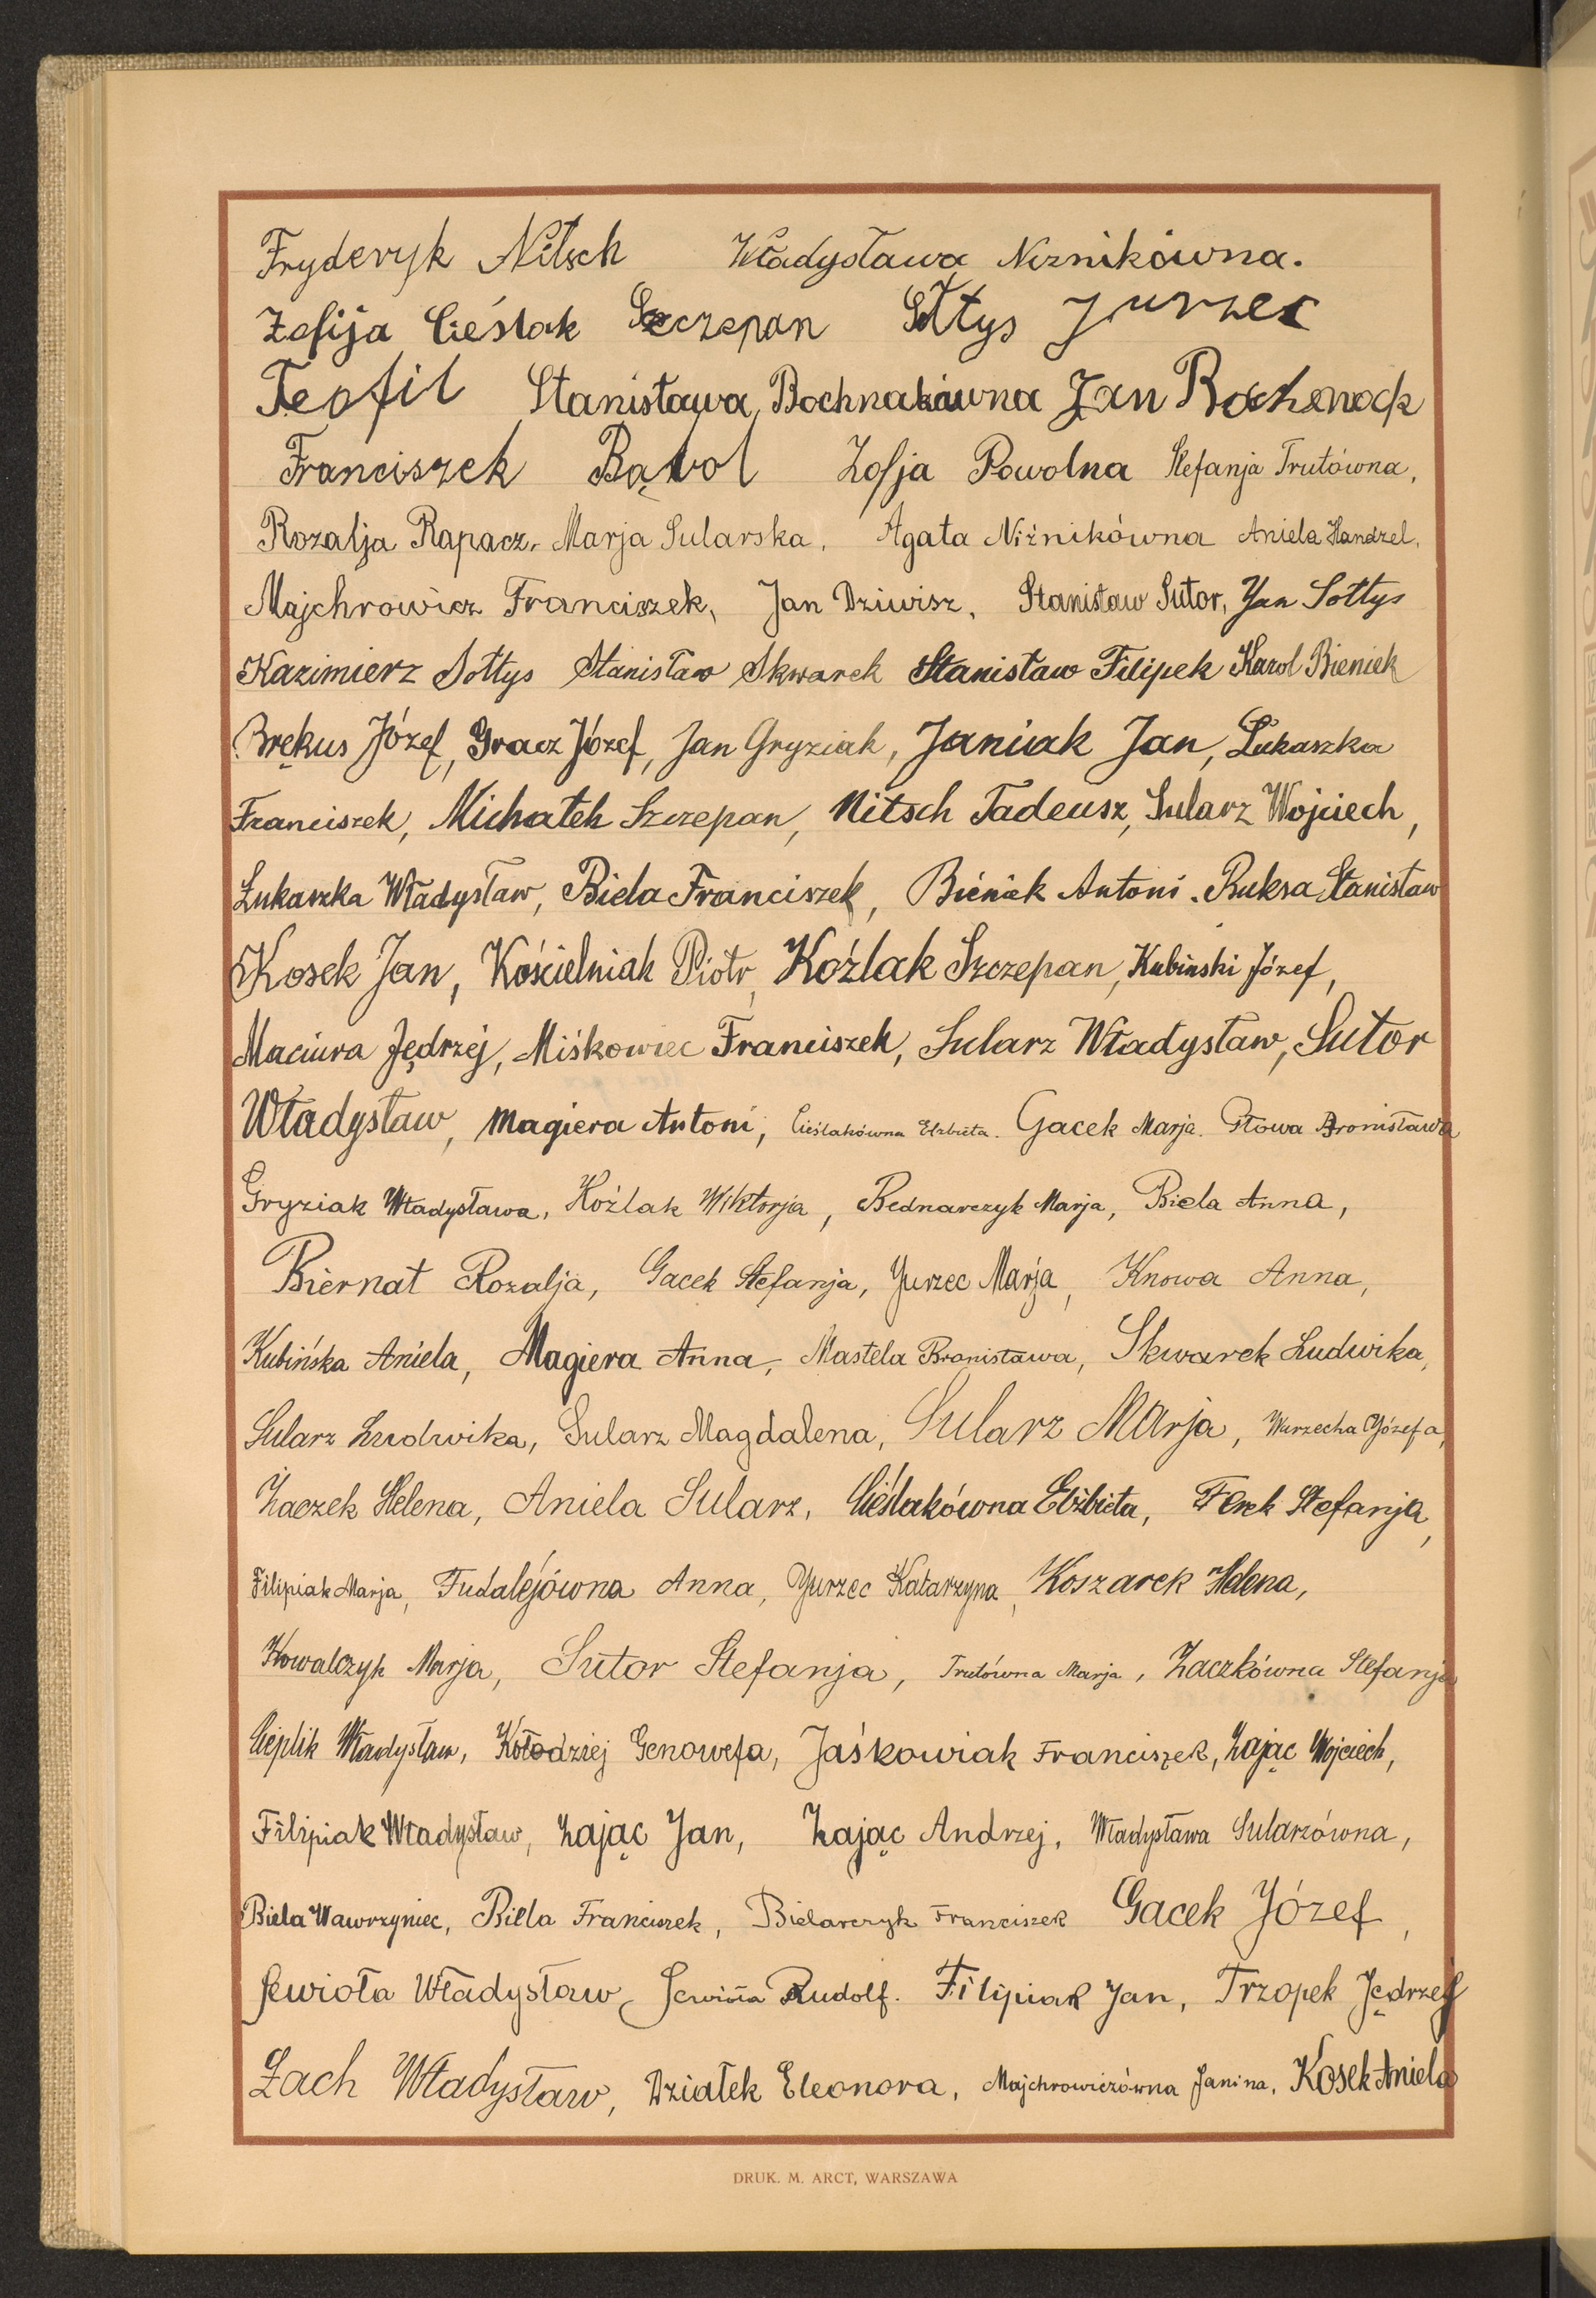 Fryderyk Nitsch Władysława Niznikówna.
Zofija Cieślak Szczepan Sołtys Jurzec
Teofil Stanisława Bochnakówna Jan Bochenack
Franciszek Bąbol Zofja Powolna Stefanja Trutówna,
Rozalja Rapacz, Marja Sularska, Agata Niżnikówna Aniela Handzel,
Majchrowicz Franciszek, Jan Dziwisz, Stanisław Sutor, Jan Sołtys
Kazimierz Sołtys Stanisław Skwarek Stanisław Filipek Karol Bieniek
Brękus Józef, Gracz Józef, Jan Gryziak, Janiak Jan, Łukaszka
Franciszek, Michałek Szczepan, Nitsch Tadeusz, Sularz Wojciech,
Łukaszka Władysław, Biela Franciszek, Bieniek Antoni. Buksa Stanisław
Kosek Jan, Kościelniak Piotr, Koźlak Szczepan, Kubiński Józef,
Maciura Jędrzej, Miśkowiec Franciszek, Sularz Władysław, Sutor
Władysław, Magiera Antoni, Cieślakówna Elżbieta. Gacek Marja. Głowa Bronisława
Gryziak Władysława, Koźlak Wiktorja, Bednarczyk Marja, Biela Anna,
Biernat Rozalja, Gacek Stefanja, Jurzec Marja, Knowa Anna,
Kubińska Aniela, Magiera Anna, Mastela Bronisława, Skwarek Ludwika,
Sularz Ludwika, Sularz Magdalena, Sularz Marja, Warzecha Józefa,
Żaczek Helena, Aniela Sularz, Cieślakówna Elżbieta, Ferek Stefanja,
Filipiak Marja, Fudalejówna Anna, Jurzec Katarzyna, Koszarek Helena,
Kowalczyk Marja, Sutor Stefanja, Trutówna Marja, Żaczkówna Stefanja
Cieplik Władysław, Kołodziej Genowefa, Jaśkowiak Franciszek, Zając Wojciech,
Filipiak Władysław, Zając Jan, Zając Andrzej, Władysława Sularzówna,
Biela Wawrzyniec, Biela Franciszek, Bielarczyk Franciszek Gacek Józef,
Sewioła Władysław, Sewioła Rudolf. Filipiak Jan, Trzopek Jędrzej
Łach Władysław, Działek Eleonora, Majchrowiczówna Janina, Kosek Aniela
DRUK. M. ARCT, WARSZAWA